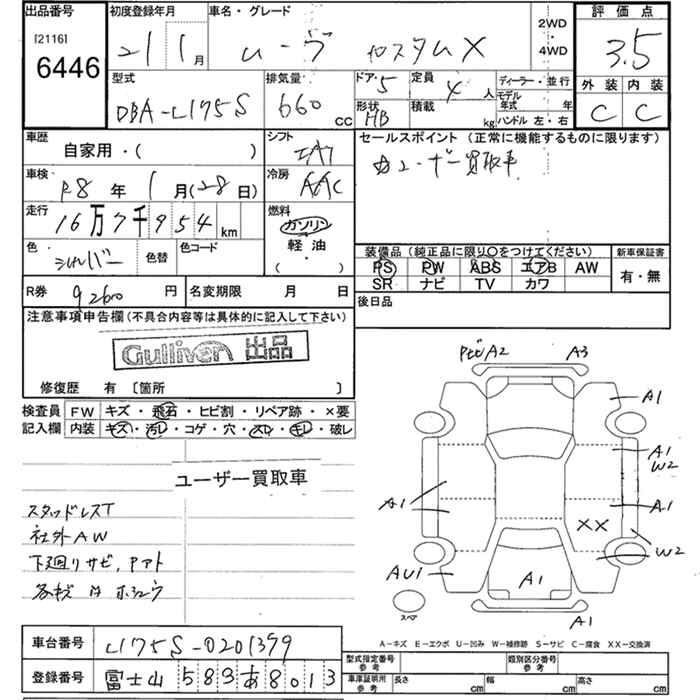 出品番号
[2116]
6446
初度登録年月
21 1月
車名・グレード
ムーヴ カスタムX
2WD
・
4WD
評価点
3.5
外装 内装
C C
型式
DBA-L175S
排気量
660 cc
ドア・ 5
形状 HB
定員 4 人
積載 kg
ディーラー・並行
モデル年式 年
ハンドル 左・右
車歴
自家用・( )
シフト
車検
R8 年 1 月 (28日)
冷房
AAC
走行
16万7千954 km
燃料
ガソリン
軽油
( )
色
シルバー
色替
色コード
R券 92600 円
名変期限 月 日
セールスポイント(正常に機能するものに限ります)
ユーザー買取車
装備品(純正品に限り○をつけてください)
PS PW ABS エアB AW
SR ナビ TV カワ
新車保証書
有・無
後日品
注意事項申告欄(不具合内容等は具体的に記入して下さい)
Gulliver 出品
修復歴 有 〔箇所 〕
検査員 FW キズ・飛石・ヒビ割・リペア跡・×要
記入欄 内装 キズ・汚レ・コゲ・穴・スレ・キレ・破レ
ユーザー買取車
スタッドレスT
社外AW
下廻りサビ、Pアト
Pビ A2 A3
A1
A1
W2
A1 A1
XX
W2
AU1
A1
A1
スペア
A-キズ E-エクボ U-凹み W-補修跡 S-サビ C-腐食 XX-交換済
車台番号 L175S-0201399
登録番号 富士山 583 あ 8013
型式指定番号 参考
類別区分番号 参考
車庫証明用 参考
長さ cm 幅 cm 高さ cm